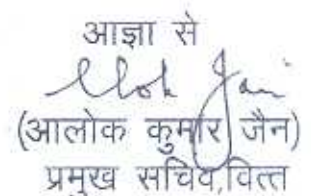 आज्ञा से
Alok Jain
(आलोक कुमार जैन)
प्रमुख सचिव,वित्त